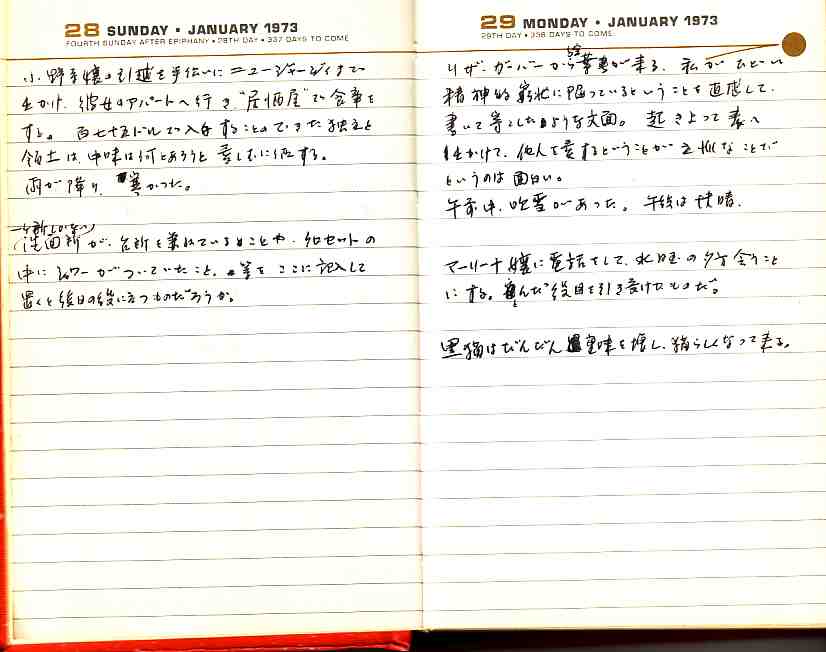 28 SUNDAY • JANUARY 1973
FOURTH SUNDAY AFTER EPIPHANY • 28TH DAY • 337 DAYS TO COME
小野寺嬢の引越を手伝いにニュージャージィまで
出かけ、彼女のアパートへ行き"居酒屋"で食事を
する。百七十五ドルで入手することのできた独立と
領土は、中味は何とあろうと羨しむに価する。
雨が降り、寒かった。
洗面所が、台所を兼ねていることや、クロセットの
中にシャワーがついていたこと、等をここに記入して
置くと後日の役に立つものだろうか。
29 MONDAY • JANUARY 1973
29TH DAY • 336 DAYS TO COME
リザ・ガーバーから絵葉書が来る、私がひどい
精神的窮状に陥っているということを直感して、
書いて寄こしたような文面。起きよって表へ
出かけて、他人を愛するということが主体なことだ
というのは面白い。
午前中、吹雪があった。午後は快晴。
マーリーナ嬢に電話をして、水曜の夕方会うこと
にする。役目を引き受けたものだ。
黒猫はだんだん重味を増し、猫らしくなって来る。